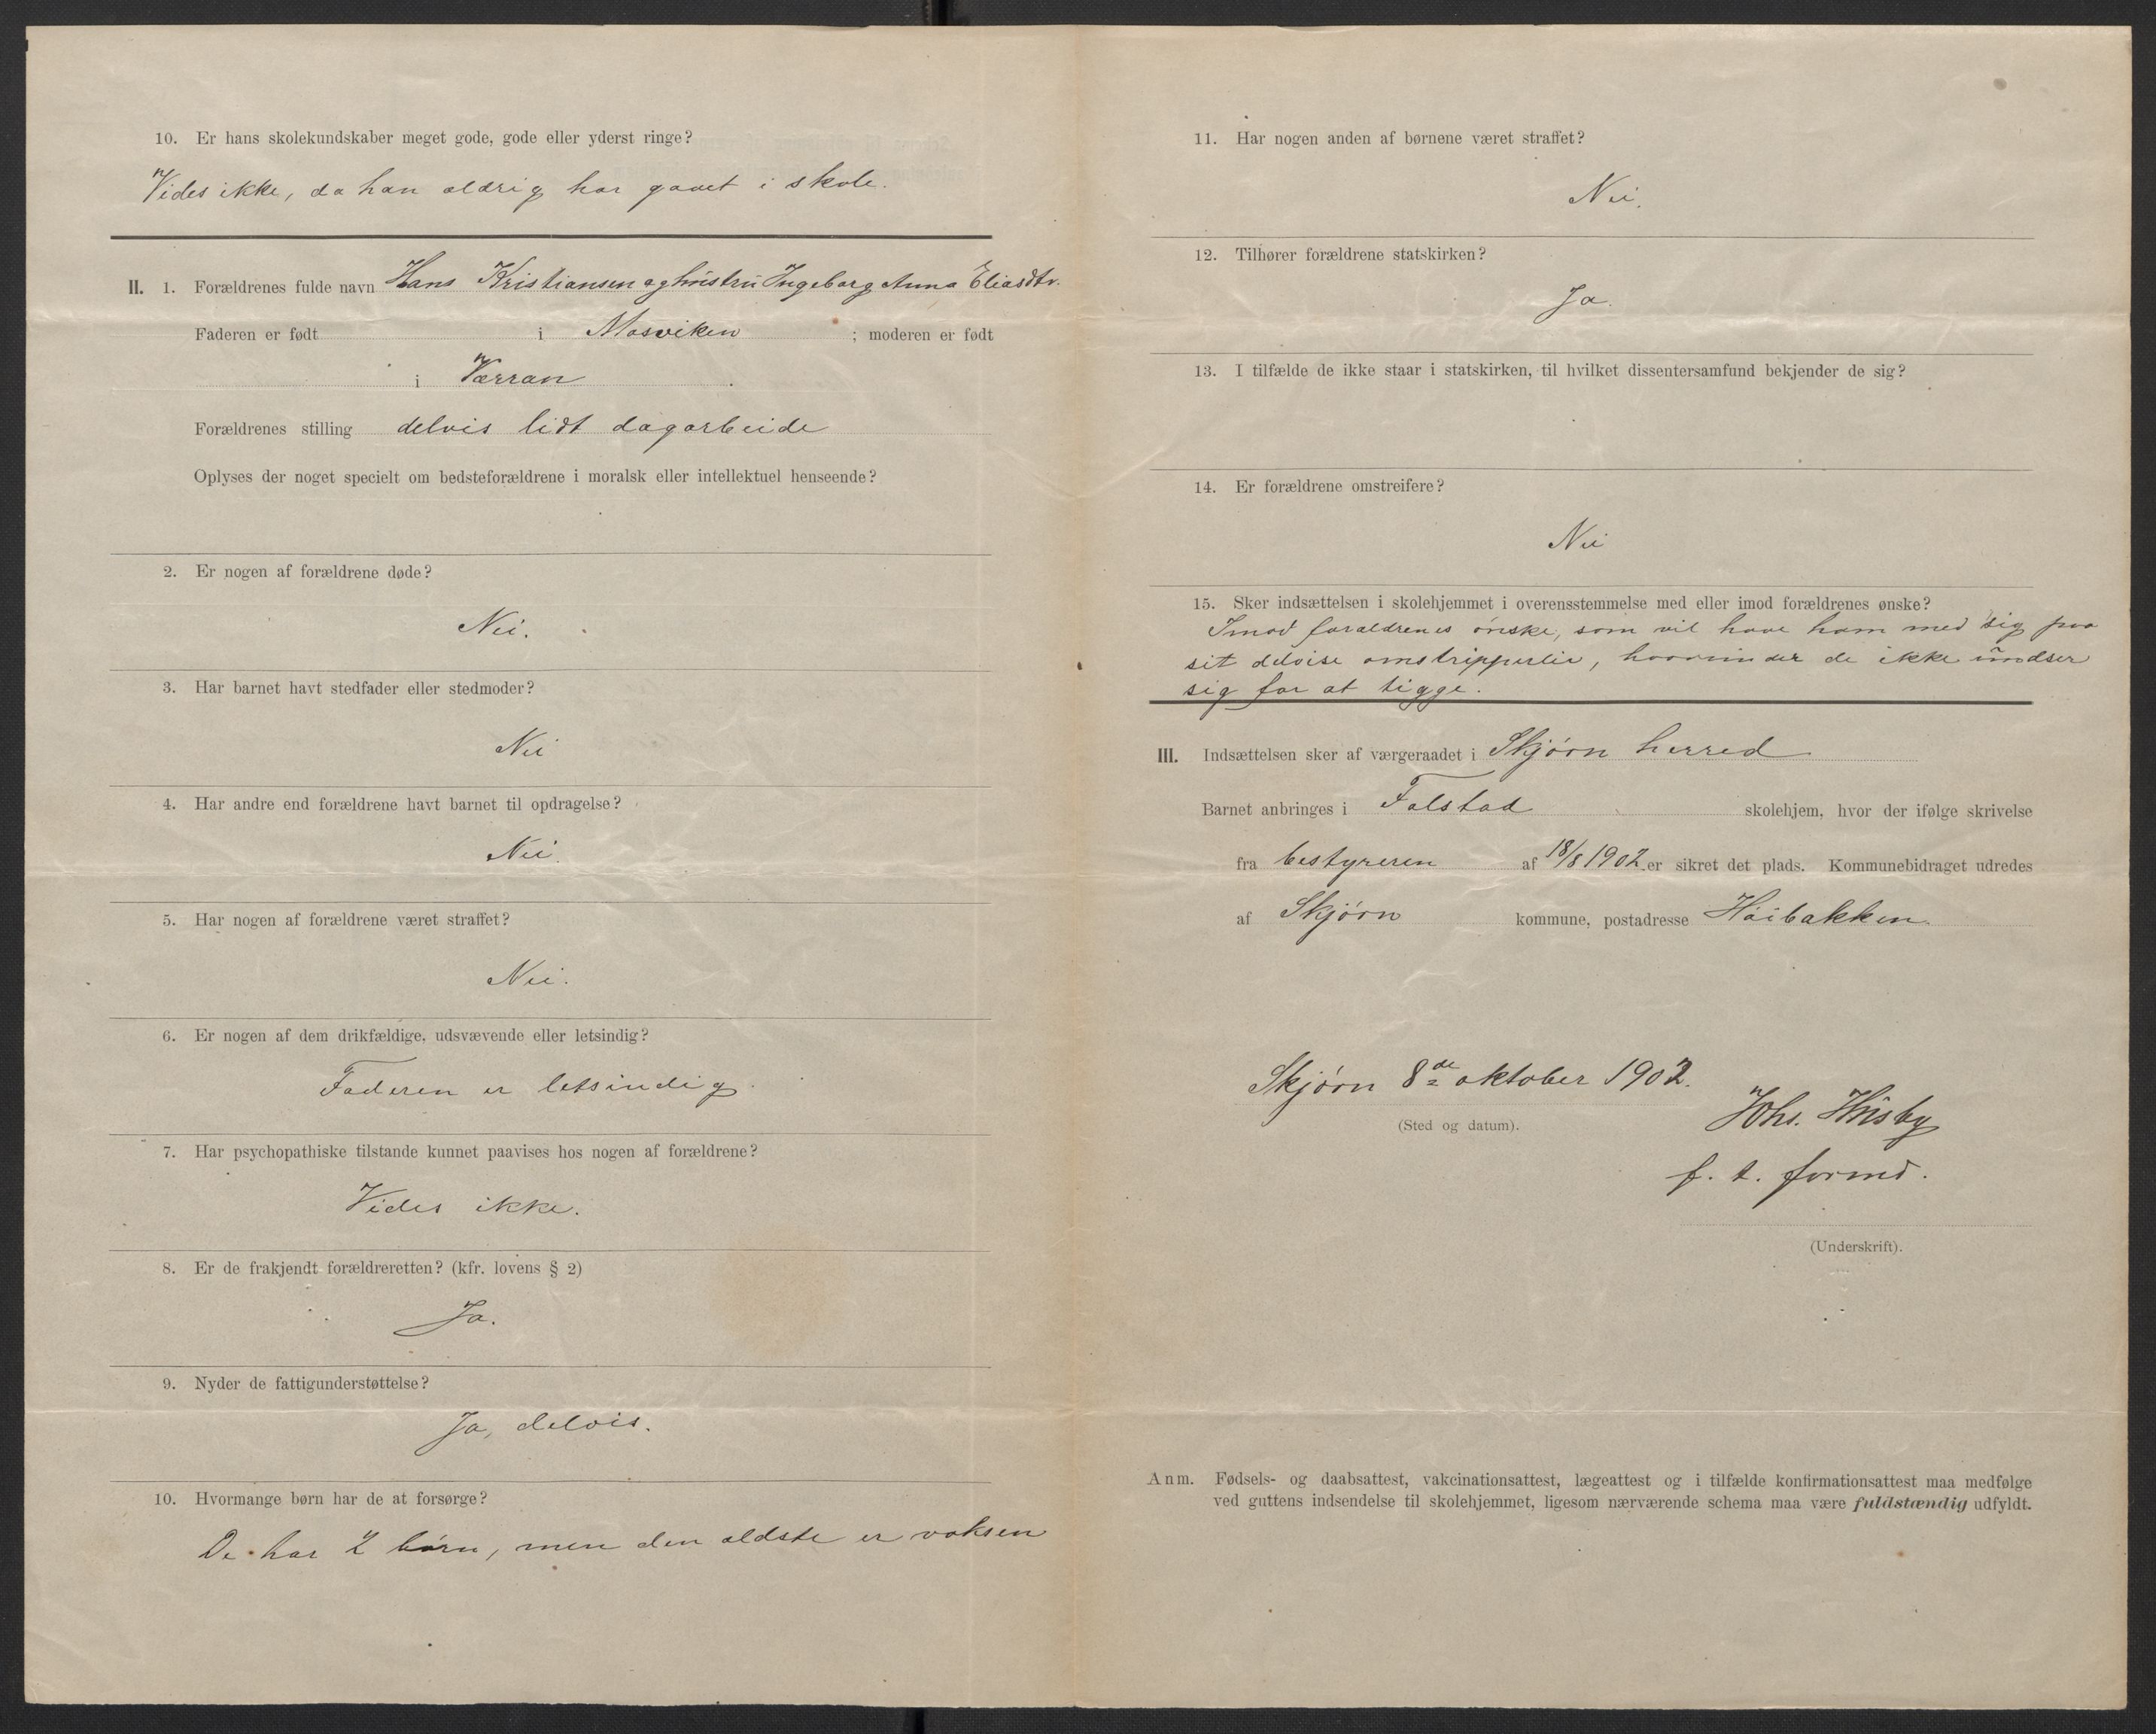 10. Er hans skolekundskaber meget gode, gode eller yderst ringe?
Vides ikke, da han aldrig har gaaet i skole.
II. 1. Forældrenes fulde navn Hans Kristiansen og hustru Ingeborg Anna Eliasdtr.
Faderen er født i Mosviken ; moderen er født
i Værran
Forældrenes stilling delvis lidt dagarbeide
Oplyses der noget specielt om bedsteforældrene i moralsk eller intellektuel henseende?
2. Er nogen af forældrene døde?
Nei.
3. Har barnet havt stedfader eller stedmoder?
Nei
4. Har andre end forældrene havt barnet til opdragelse?
Nei.
5. Har nogen af forældrene været straffet?
Nei.
6. Er nogen af dem drikfældige, udsvævende eller letsindig?
Faderen er letsindig.
7. Har psychopathiske tilstande kunnet paavises hos nogen af forældrene?
Vides ikke.
8. Er de frakjendt forældreretten? (kfr. lovens § 2)
Ja.
9. Nyder de fattigunderstøttelse?
Ja, delvis.
10. Hvormange børn har de at forsørge?
De har 2 børn, men den ældste er voksen
11. Har nogen anden af børnene været straffet?
Nei.
12. Tilhører forældrene statskirken?
Ja.
13. I tilfælde de ikke staar i statskirken, til hvilket dissentersamfund bekjender de sig?
14. Er forældrene omstreifere?
Nei
15. Sker indsættelsen i skolehjemmet i overensstemmelse med eller imod forældrenes ønske?
Imod forældrenes ønske, som vil have ham med sig paa
sit delvise omstripperliv, hvorunder de ikke undser
sig for at tigge.
III. Indsættelsen sker af værgeraadet i Skjørn herred
Barnet anbringes i Falstad skolehjem, hvor der ifølge skrivelse
fra bestyreren af 18/8 1902 er sikret det plads. Kommunebidraget udredes
af Skjørn kommune, postadresse Høibakken.
Skjørn 8de oktober 1902.
(Sted og datum).
Johs. Husby
f. t. formd.
(Underskrift).
Anm. Fødsels- og daabsattest, vakcinationsattest, lægeattest og i tilfælde konfirmationsattest maa medfølge
ved guttens indsendelse til skolehjemmet, ligesom nærværende schema maa være fuldstændig udfyldt.